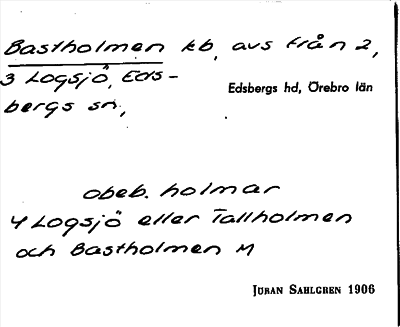 Bastholmen kb, avs från 2,
3 Logsjö, Eds-
bergs sn,
Edsbergs hd, Örebro län
obeb. holmar
4 Logsjö eller Tallholmen
och Bastholmen M
JÖRAN SAHLGREN 1906